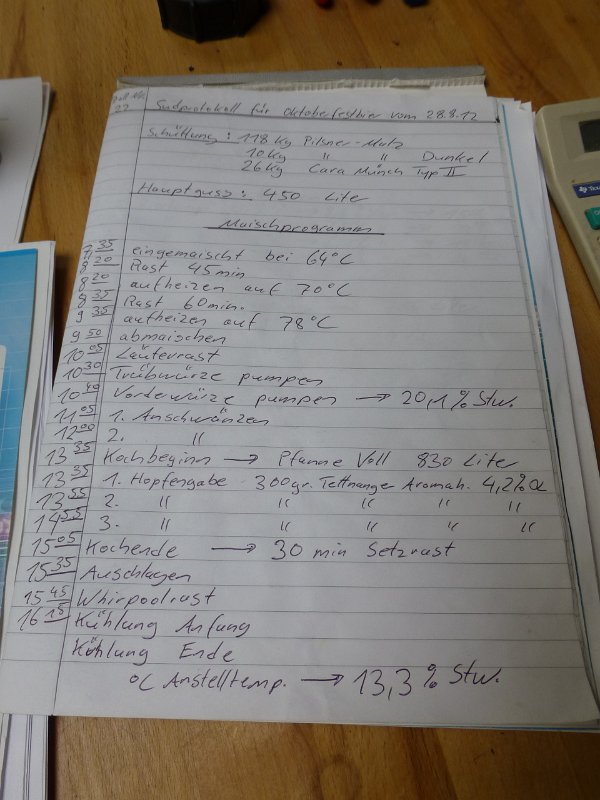 22 Sudprotokoll für Oktoberfestbier vom 28.8.12
Schüttung: 118 Kg Pilsner-Malz
10 Kg " " Dunkel
26 Kg Cara Münch Typ II
Hauptguss: 450 Liter
Maischprogramm
7 35 eingemaischt bei 64°C
20 Rast 45 min
8 20 aufheizen auf 70°C
8 35 Rast 60 min.
9 35 aufheizen auf 78°C
9 50 abmaischen
10 05 Läuterrast
10 30 Trübwürze pumpen
10 40 Vorderwürze pumpen → 20,1% Stw.
11 05 1. Anschwänzen
12 00 2. "
13 35 Kochbeginn → Pfanne Voll 830 Liter
13 35 1. Hopfengabe 300gr. Tettnanger Aromah. 4,2% α
13 55 2. " " " " "
14 55 3. " " " " "
15 05 Kochende → 30 min Setzrast
15 35 Auschlagen
15 45 Whirpoolrast
16 15 Kühlung Anfang
Kühlung Ende
°C Anstelltemp. → 13,3% Stw.